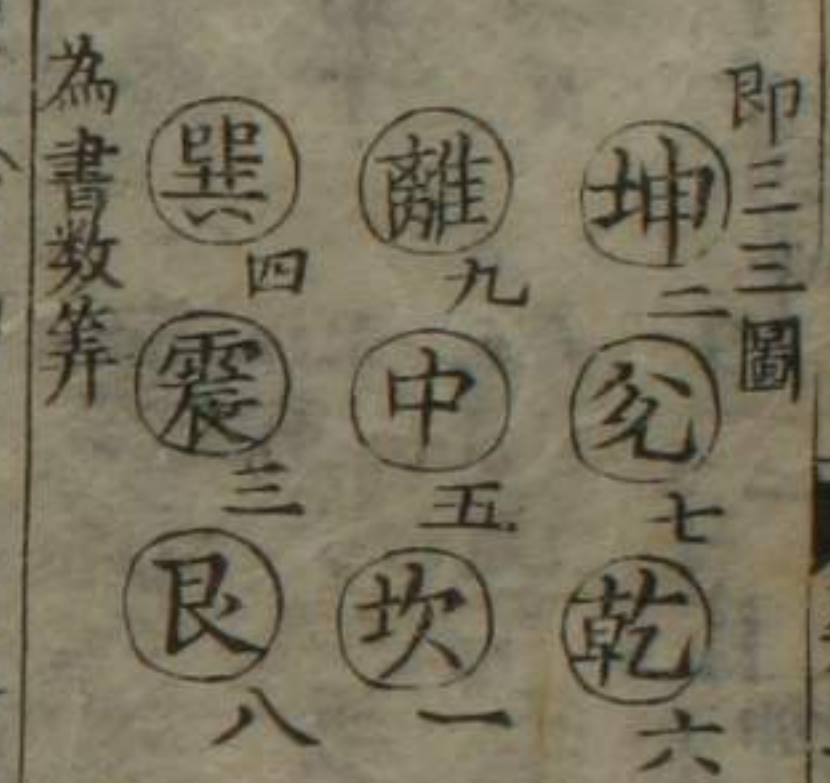 即三三圖
坤二
兊七
乾六
離九
中五
坎一
巽四
震三
艮八
為書数筭